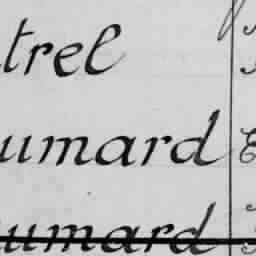 trel
umard
umard